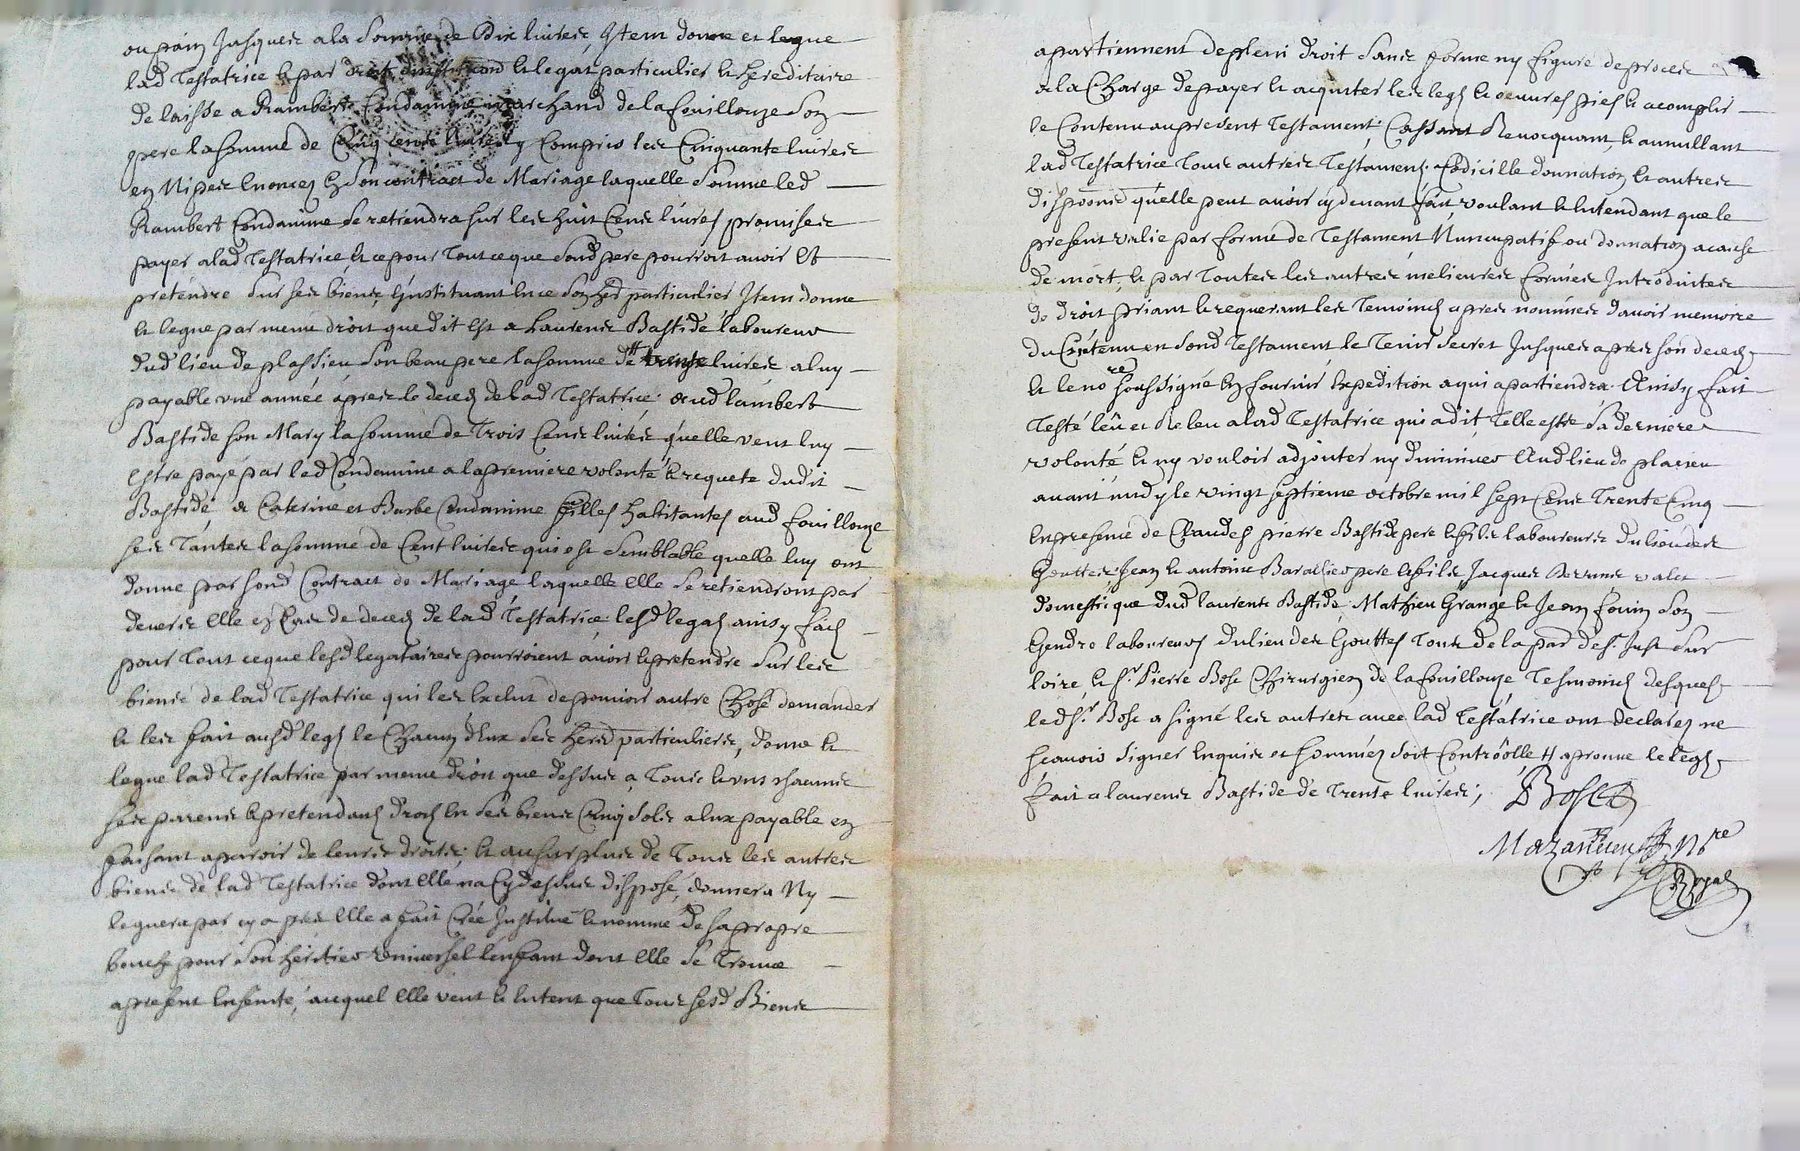 ou pain Jusques a la Somme de Dix livres, Item donne et legue
lad Testatrice et par droit dinstitution et legat particulier et hereditaire
delaisse a Rambert Condamine marchand de la fouillouze son
pere la somme de Cinq cents livres y Compris les Cinquante livres
en Nipes enonces en son contract de Mariage laquelle somme led
Rambert Condamine se retiendra sur les huit Cens livres promises
payer a lad Testatrice, et ce pour tout ce que sond pere pourroit avoir et
pretendre sur ses biens linstituant en ce son herd particulier Item donne
et legue par meme droit que dit est a Laurens Bastide laboureur
dud lieu de plassieu son beau pere la somme de trente livres a luy
payable une année apres le deces de lad Testatrice: aud lambert
Bastide son Mary la somme de Trois Cens livres quelle veut luy
estre payé par led Condamine a la premiere volonté et requete dudit
Bastide; a Caterine et Barbe Condamine filles habitantes aud fouillouze
ses Tantes la somme de Cent livres qui est semblable quelle luy ont
donne par sond Contract de Mariage laquelle elle se retiendront par
devers elle en Cas de deces de lad Testatrice: lesd legas ainsy faits
pour tout ce que lesd legataires pourroient avoir et pretendre sur les
biens de lad Testatrice qui les exclut de pouvoir autre Chose demander
et les fait ausd legs et Chacun dEux ses herd particuliers, donne et
legue lad Testatrice par meme droit que dessus a Tous et uns chacuns
ses parens et pretendants droits en ses biens Cinq sols a eux payable en
faisant aparoir de leurs droits; et au surplus de Tous les autres
biens de lad Testatrice dont elle na Cy dessus disposé, donnera Ny
leguera par cy apres elle a fait Crée Institué et nommé de sa propre
bouche pour son heritier universel lenfant dont elle se trouve
apresent enseinte, auquel elle veut et entent que Tous sesd Biens
apartiennent de plein droit sans forme ny figure de proces
a la Charge de payer et acquiter les legs et oeuvres pies et acomplir
le Contenu au present Testament; Cassant Revocquant et annullant
lad Testatrice Tous autres Testamens Codicille donnation et autres
dispoons quelle peut avoir cy devant fait voulant et entendant que le
present valie par forme de Testament Nuncupatif ou donnation a cause
de mort, et par Toutes les autres melieures formes Introduites
de droit priant et requerant les Temoins apres nommés davoir memoire
du Contenu en sond Testament le Tenir secret Jusques apres son deces
et le nore soussigné en fournir expedition a qui apartiendra Ainsy fait
Testé leu et Releu a lad Testatrice qui a dit Telle estre sa derniere
volonté et ny vouloir adjouter ny diminuer Aud lieu de plasieu
avant midy le vingt septieme octobre mil sept Cens Trente Cinq
en presence de Claude pierre Bastide pere et fils laboureurs du lieu des
Gouttes Jean et antoine Barallier pere et fils Jacques valet
domestique dud laurens Bastide; Mathieu Grange et Jean fouin son
Gendre laboureurs du lieu des Gouttes Tous de la par de st Just sur
loire, et sr Pierre Bose Chirurgien de la fouillouze Tesmoins desquels
led sr Bose a signé les autres avec lad Testatrice ont declarez ne
scavoir signer enquis et sommés soit Controolle H aprouve le legs
fait a laurens Bastide de Trente livres;
Bose
Mazancieu Nre
Royal